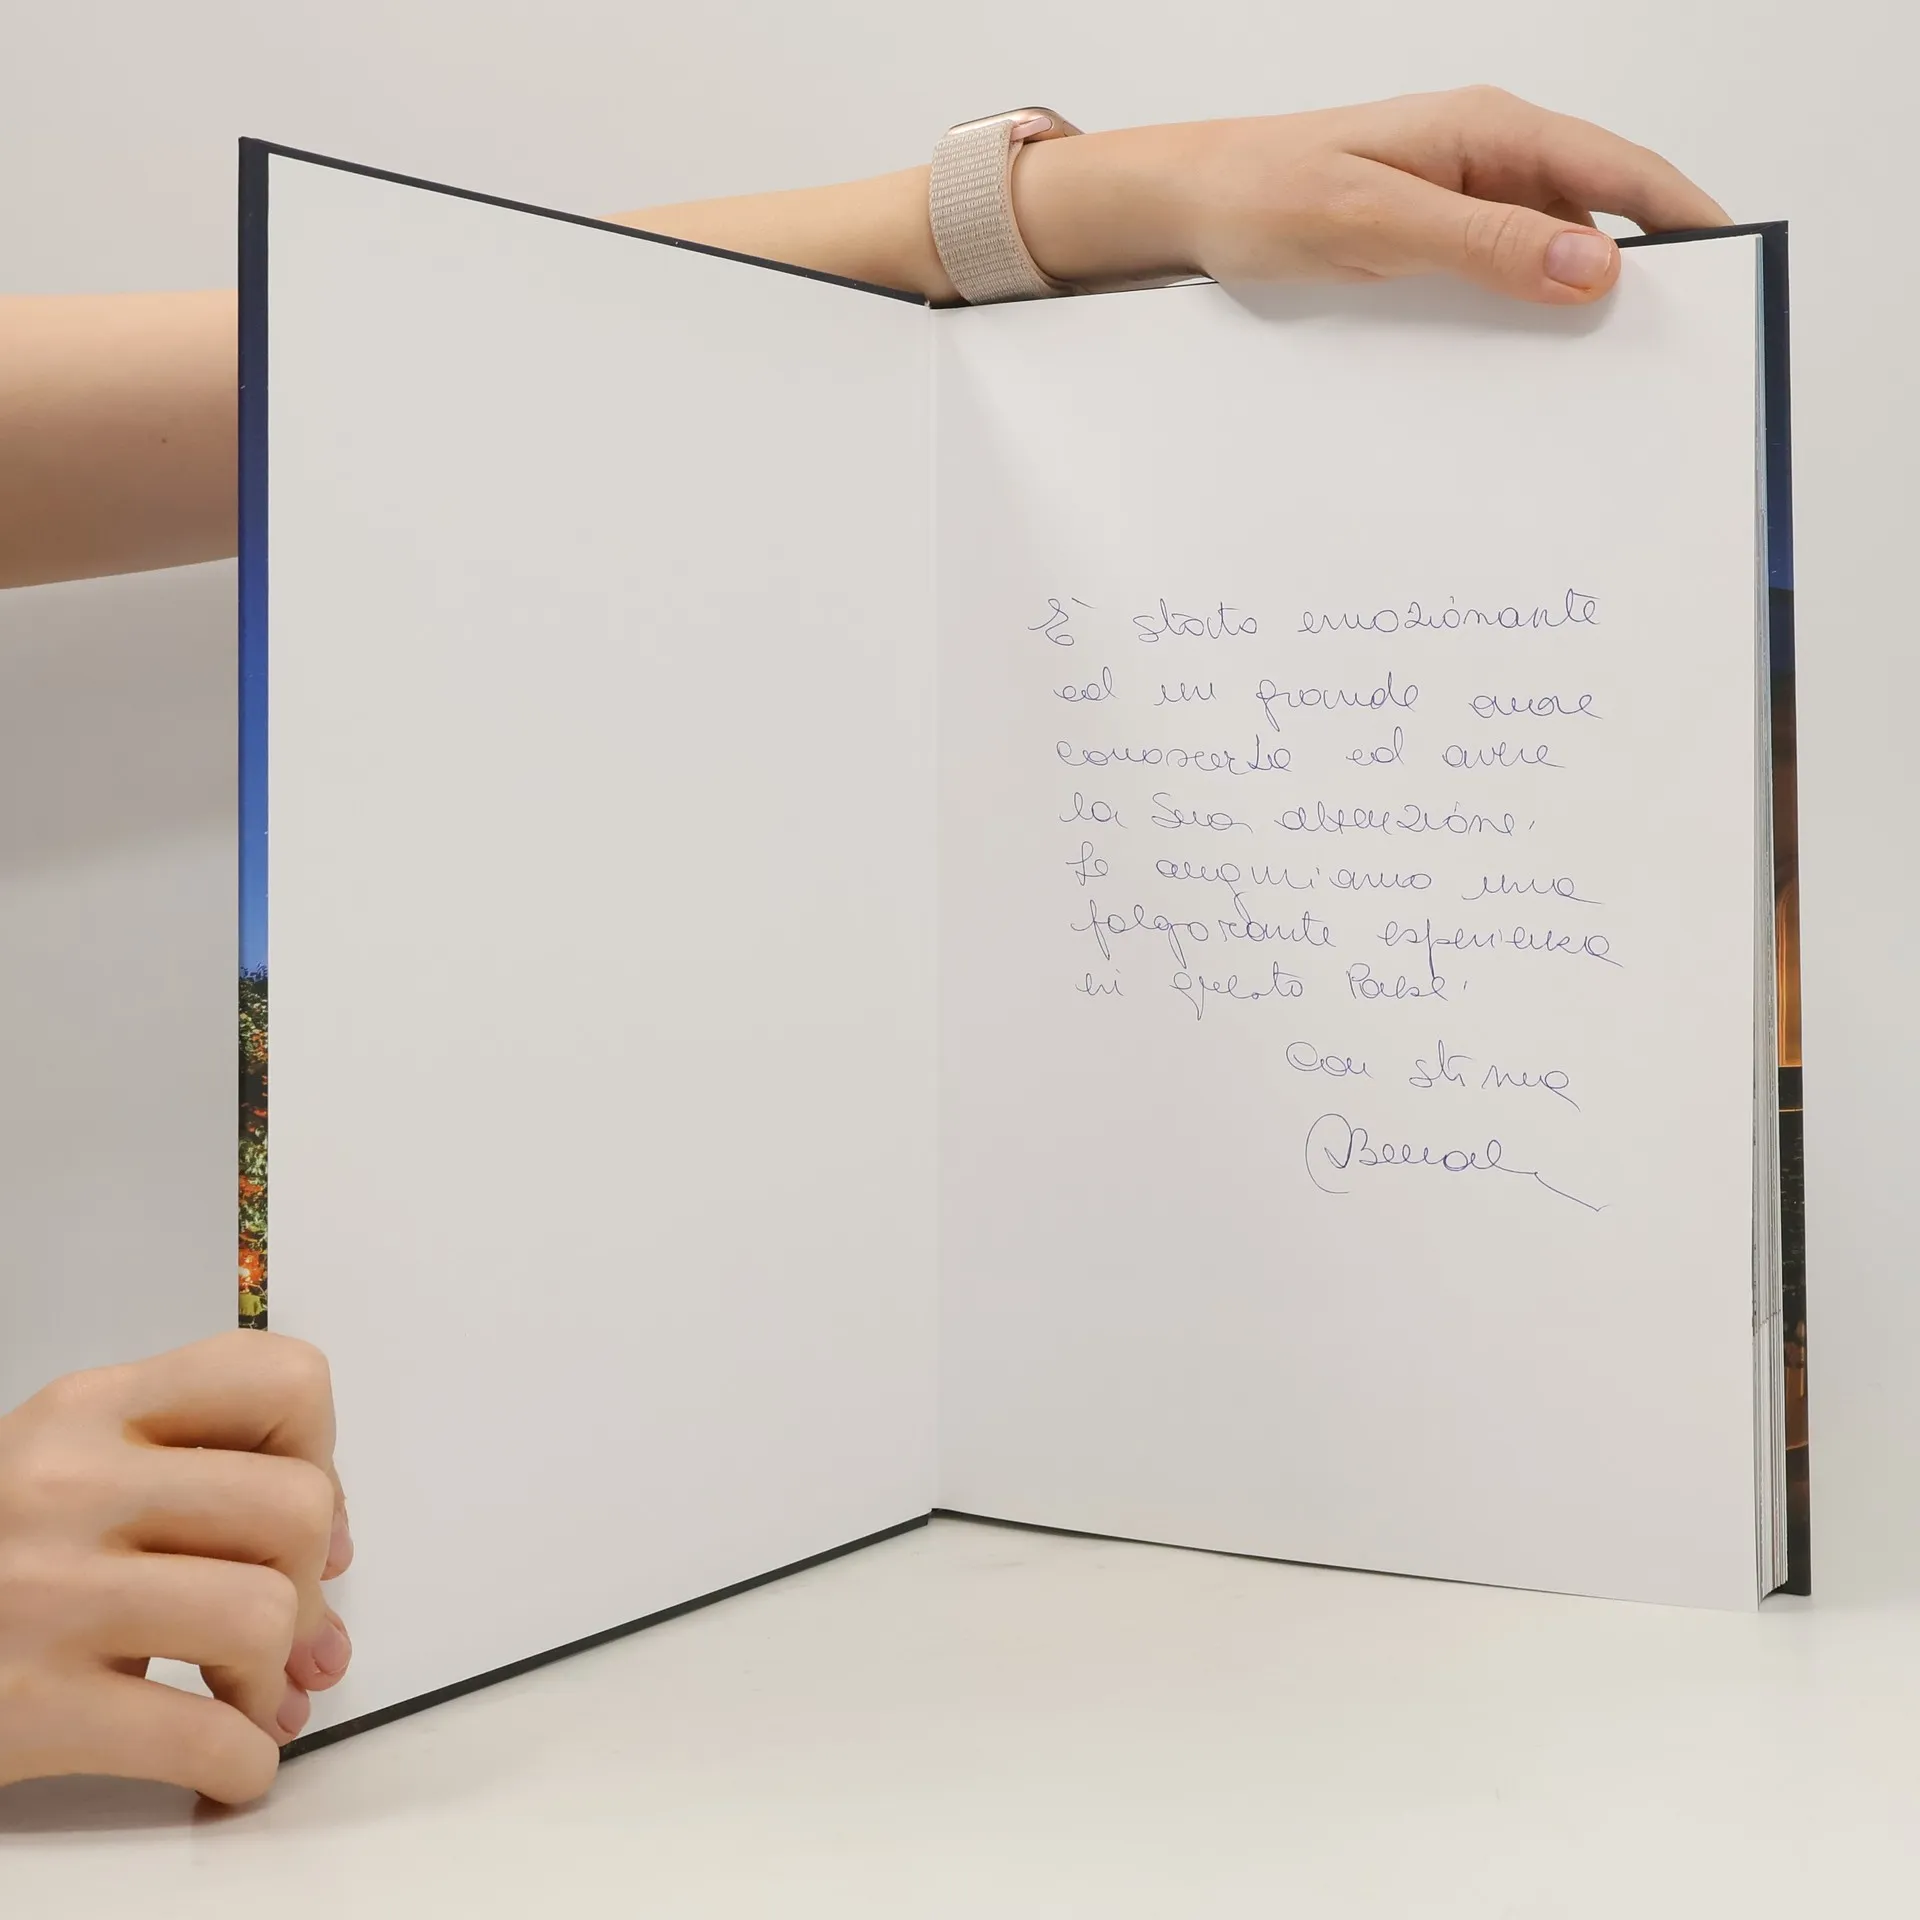 È stato emozionante
ed un grande onore
conoscerLa ed avere
la Sua attenzione.
Le auguriamo una
folgorante esperienza
in questo Paese.
Con stima